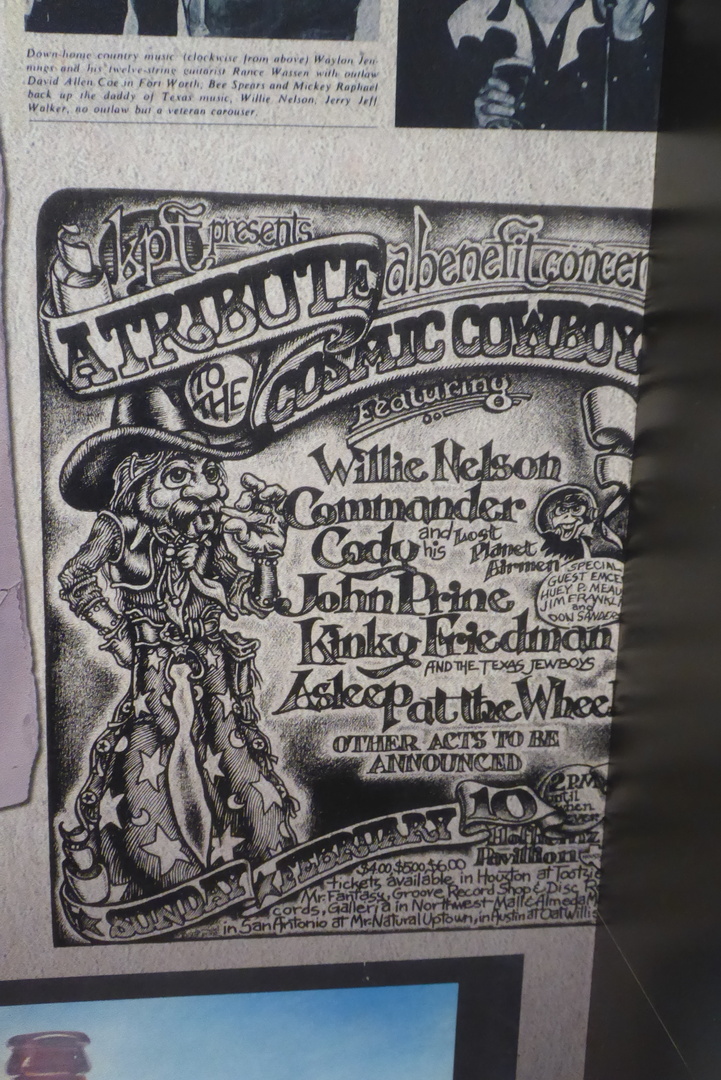 Down-home country music (clockwise from above) Waylon Jen-
nings and his twelve-string guitarist Rance Wassen with outlaw
David Allen Coe in Fort Worth, Bee Spears and Mickey Raphael
back up the daddy of Texas music, Willie Nelson. Jerry Jeff
Walker, no outlaw but a veteran carouser.
kpft presents
a benefit concer
A TRIBUTE
TO THE
COSMIC COWBOY
Featuring
Willie Nelson
Commander
Cody and his Lost
Planet
Airmen
SPECIAL
GUEST EMCE
HUEY P. MEAU
JIM FRANKLI
and
DON SANDERS
John Prine
Kinky Friedman
AND THE TEXAS JEWBOYS
Asleep at the Wheel
OTHER ACTS TO BE
ANNOUNCED
SUNDAY FEBRUARY 10
2 P.M.
until
when
ever
Hofheinz
Pavillion
$4.00, $5.00, $6.00
tickets available in Houston at Tootsie
Mr. Fantasy, Groove Record Shop & Disc R
cords, Galleria in Northwest Mall & Almeda M
in San Antonio at Mr. Natural Uptown, in Austin at Oat Willi